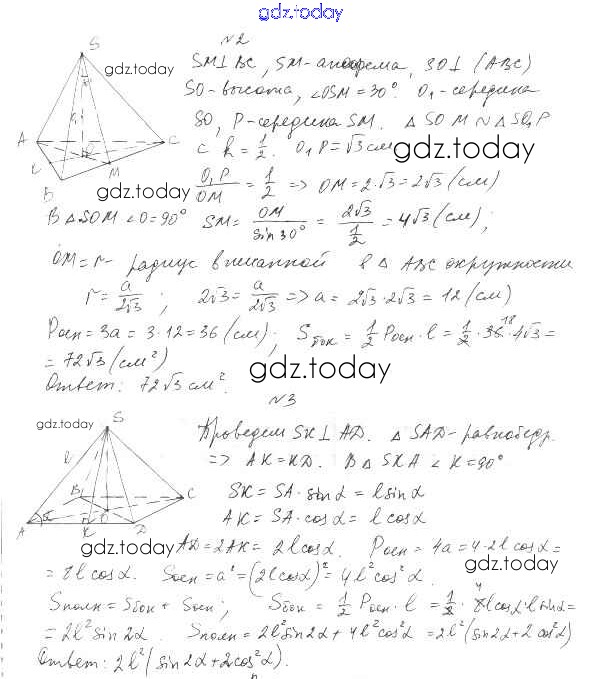 gdz.today
№2
SM⊥BC, SM-апофема, SO⊥(ABC)
SO-высота, ∠OSM=30°. O₁-середина
SO, P-середина SM. △SOM∾△SO₁P
с k=1/2. O₁P=√3см
O₁P/OM = 1/2 => OM=2·√3=2√3(см)
В △SOM ∠O=90° SM= OM/sin30° = 2√3/(1/2) =4√3(см);
OM=r- радиус вписанной в △ABC окружности
r= a/2√3 ; 2√3= a/2√3 => a= 2√3·2√3=12(см)
Pосн=3a=3·12=36(см); Sбок= 1/2 Pосн·l= 1/2·36 18·4√3=
=72√3(см²)
Ответ: 72√3см².
№3
Проведем SK⊥AD. △SAD-равнобедр.
=> AK=KD. В △SKA ∠K=90°
SK=SA·sinα=lsinα
AK=SA·cosα=lcosα
AD=2AK=2lcosα. Pосн=4a=4·2lcosα=
=8lcosα. Sосн=a²=(2lcosα)²=4l²cos²α.
Sполн=Sбок+Sосн; Sбок= 1/2 Pосн·l= 1/2·8 4lcosα·lsinα=
=2l²sin2α. Sполн=2l²sin2α+4l²cos²α=2l²(sin2α+2cos²α)
Ответ: 2l²(sin2α+2cos²α).
S
A
B
C
M
O
L
gdz.today
gdz.today
gdz.today
gdz.today
S
l
A
B
C
D
K
O
α
gdz.today
gdz.today
gdz.today